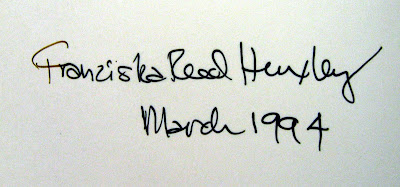 Franziska Reed Huxley
March 1994